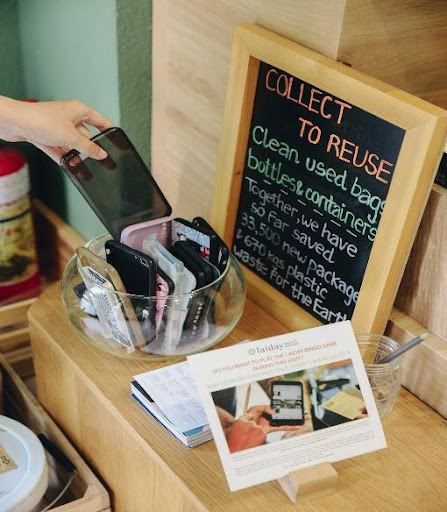 COLLECT
TO REUSE
Clean used bags
bottles & containers
Together, we have
so far saved
33,500 new package
& 670 kgs plastic
waste for the Earth
laïday
DO YOU WANT TO PLAY THE LAIDAY BINGO GAME
DURING THIS VISIT?